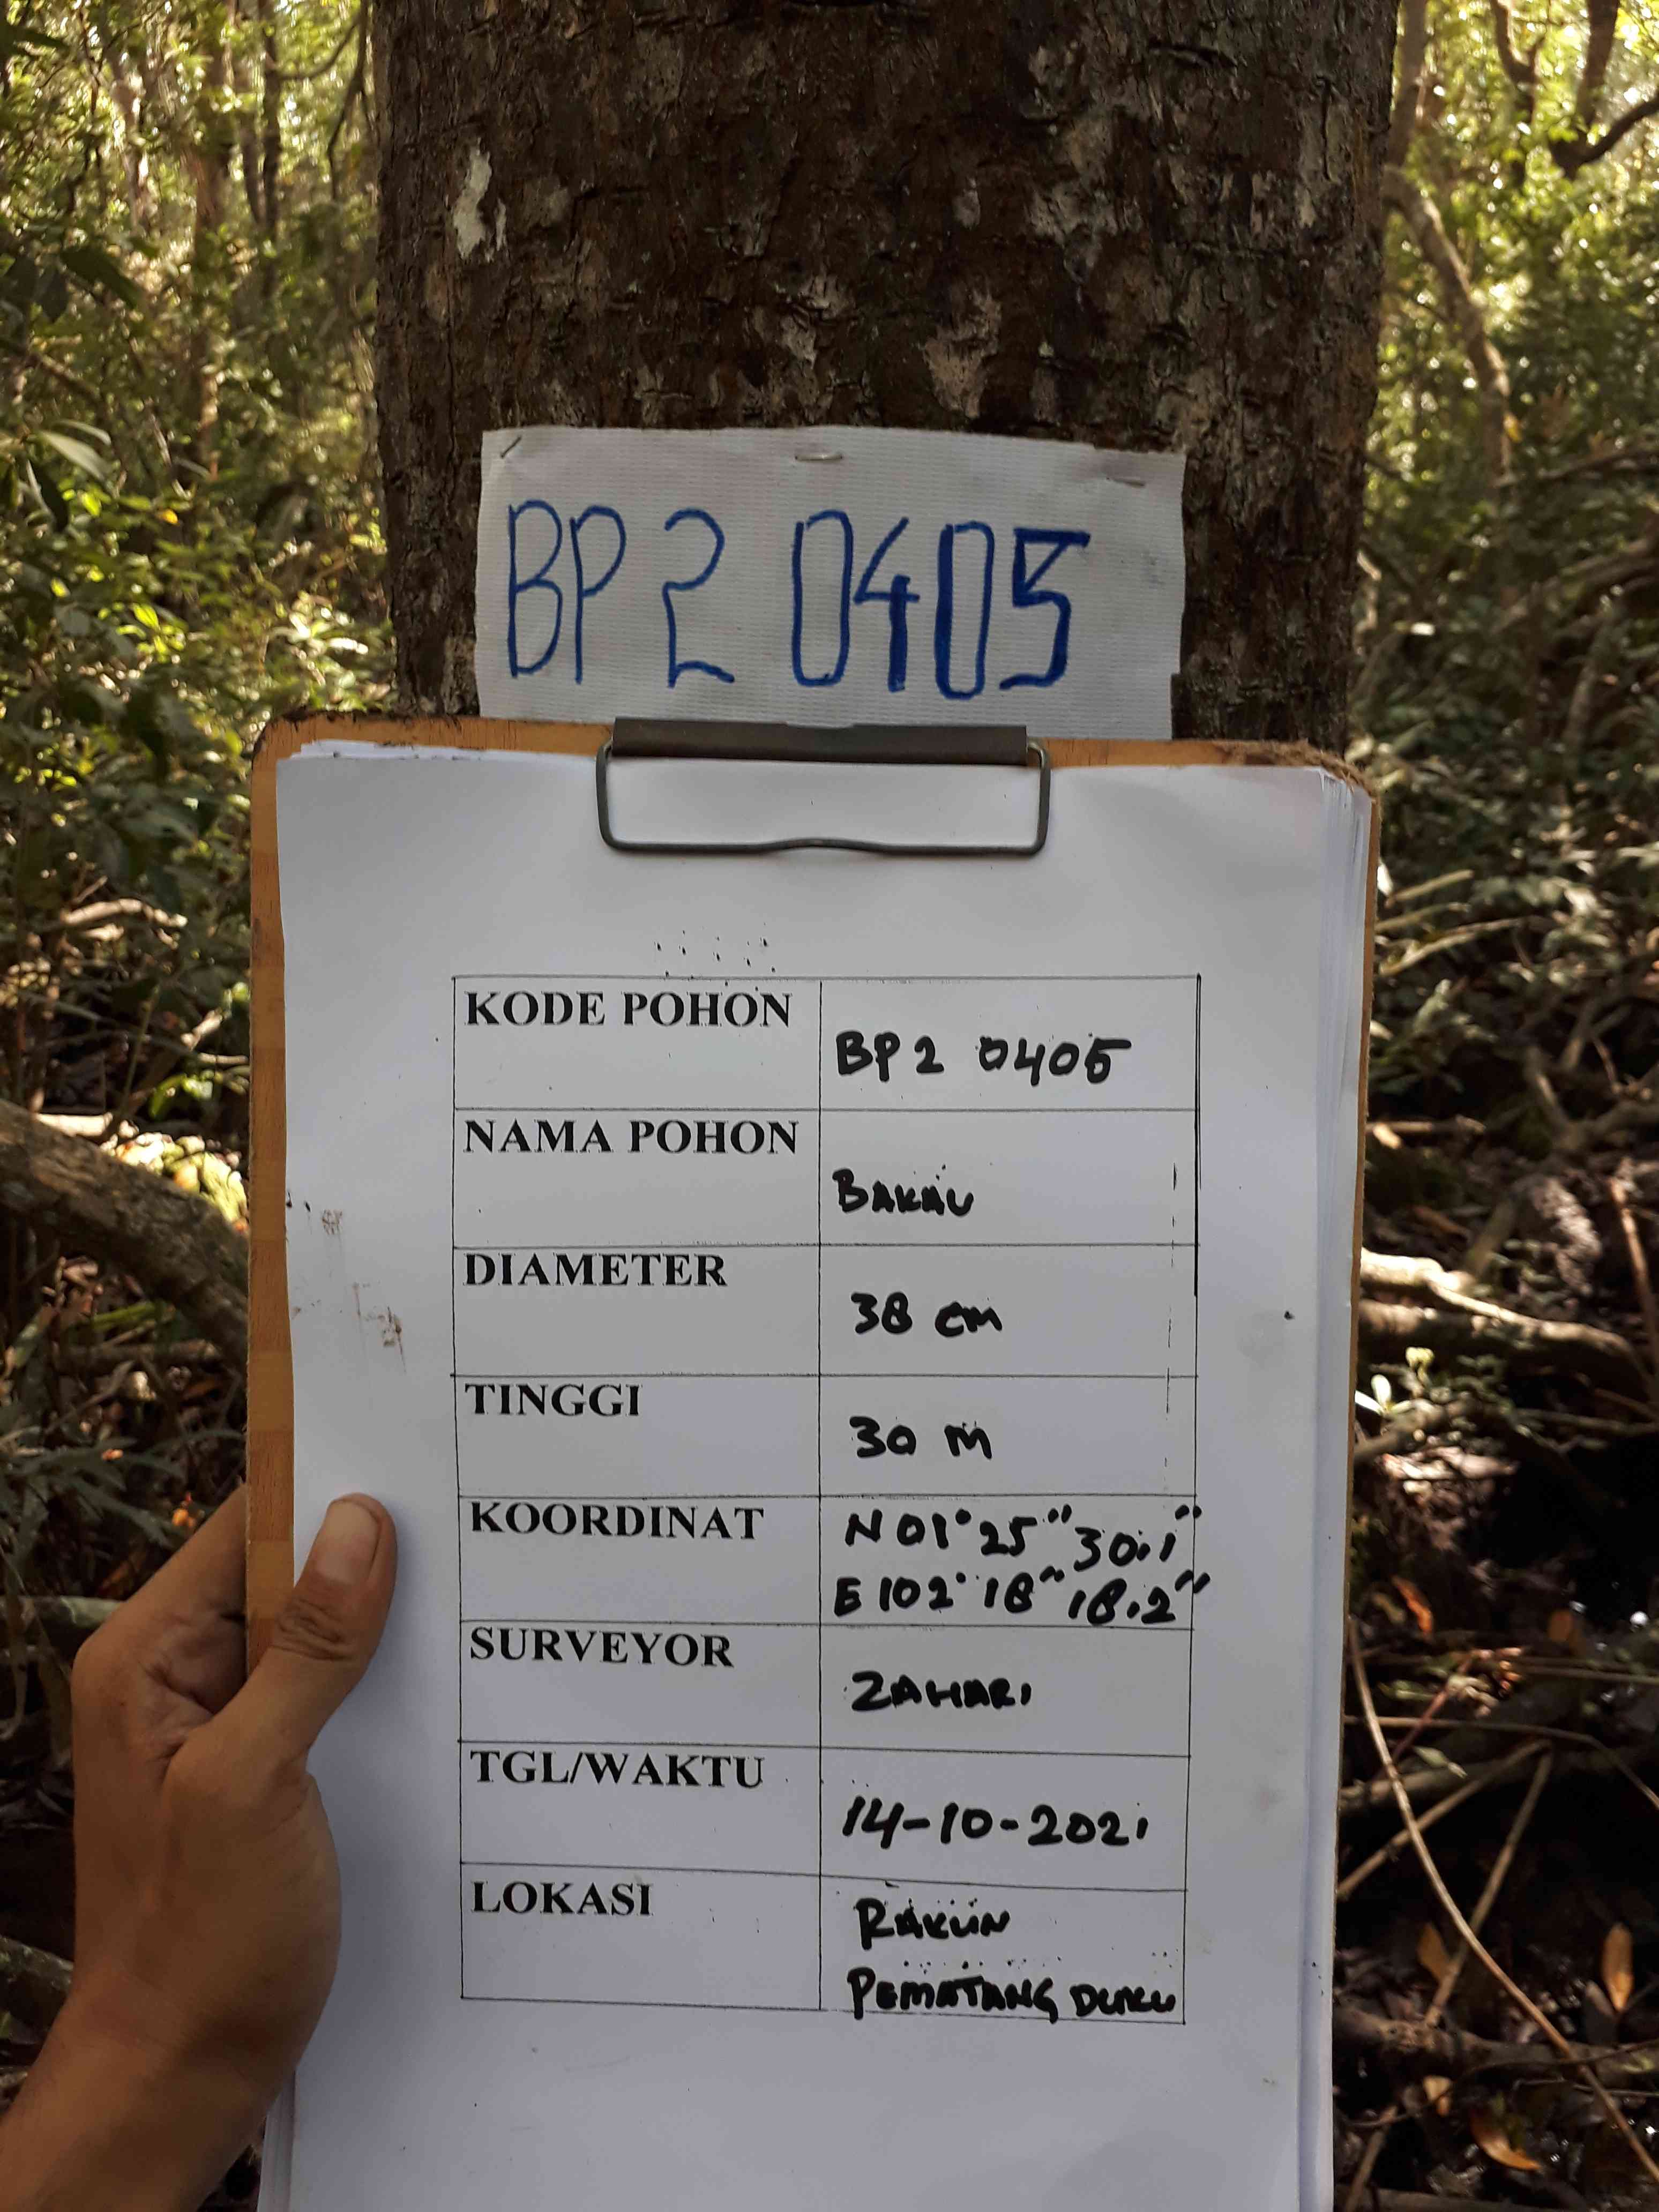 BP 2 0405
KODE POHON
BP 2 0405
NAMA POHON
BAKAU
DIAMETER
38 cm
TINGGI
30 M
KOORDINAT
N 01° 25" 30.1"
E 102° 18" 18.2"
SURVEYOR
ZAHARI
TGL/WAKTU
14-10-2021
LOKASI
RAKUN
PEMATANG DUKU